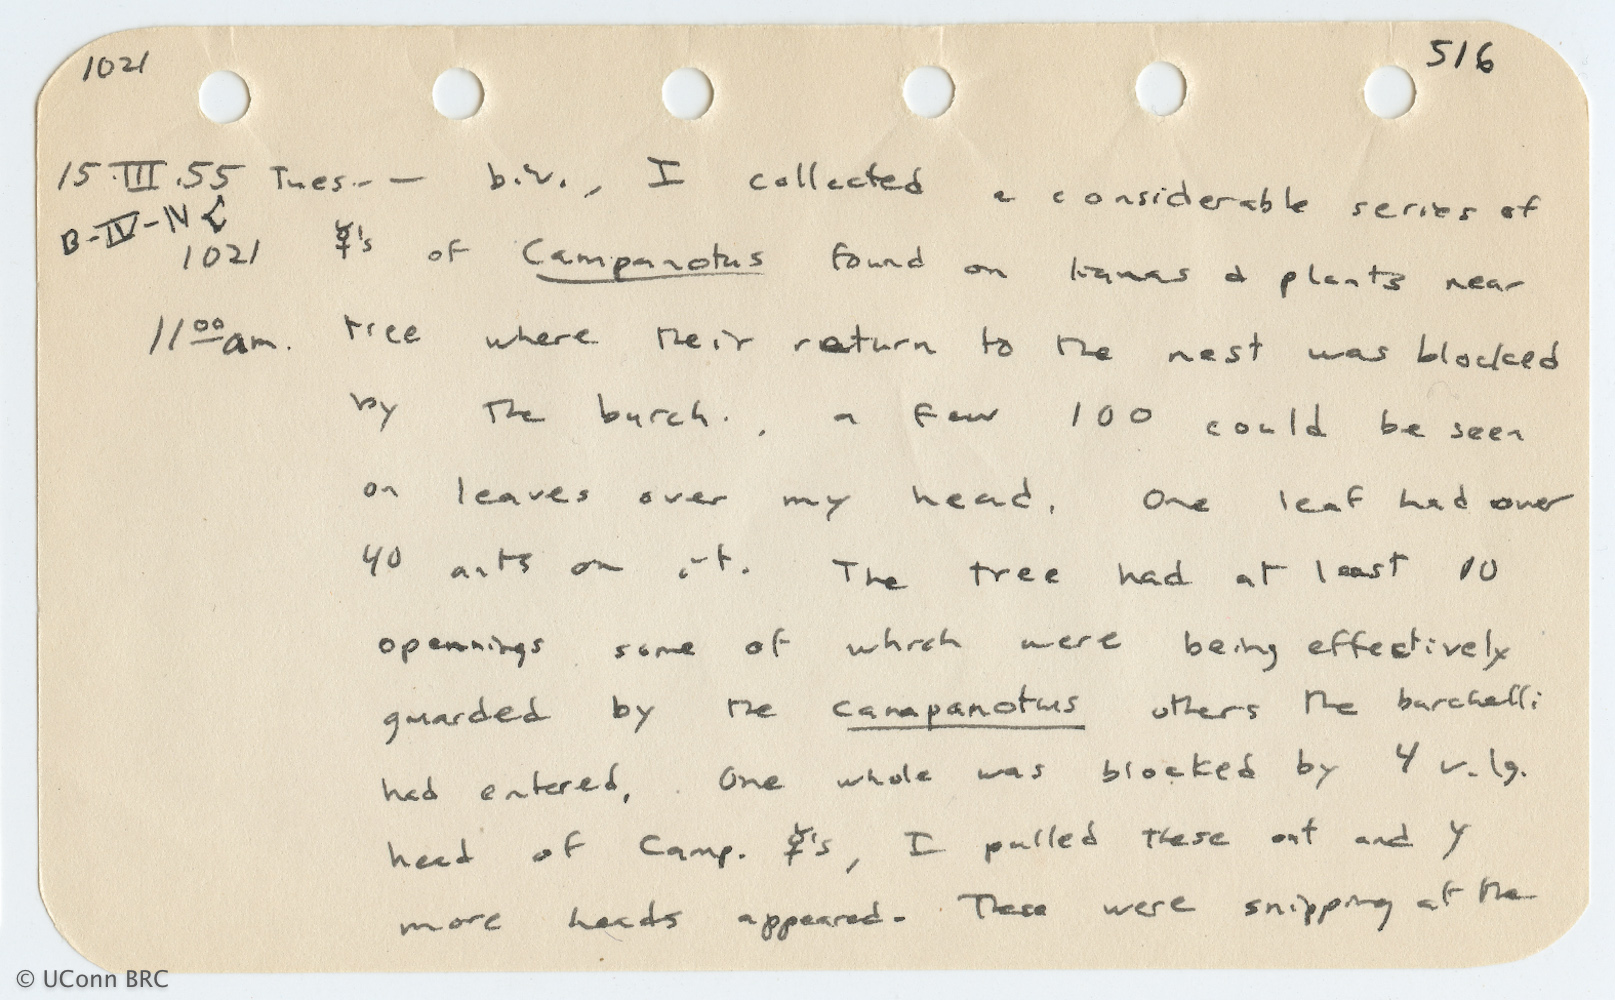 1021 516
15.III.55 Tues.-- b.iv., I collected a considerable series of
B-IV-N
1021 ☿'s of Campanotus found on lianas & plants near
11 00 am. tree where their return to the nest was blocked
by the burch., a few 100 could be seen
on leaves over my head. One leaf had over
40 ants on it. The tree had at least 10
opennings some of which were being effectively
guarded by the Camapanotus others the burchelli
had entered. One whole was blocked by 4 v. lg.
head of Camp. ☿'s, I pulled these out and 4
more heads appeared. These were snipping at the
© UConn BRC